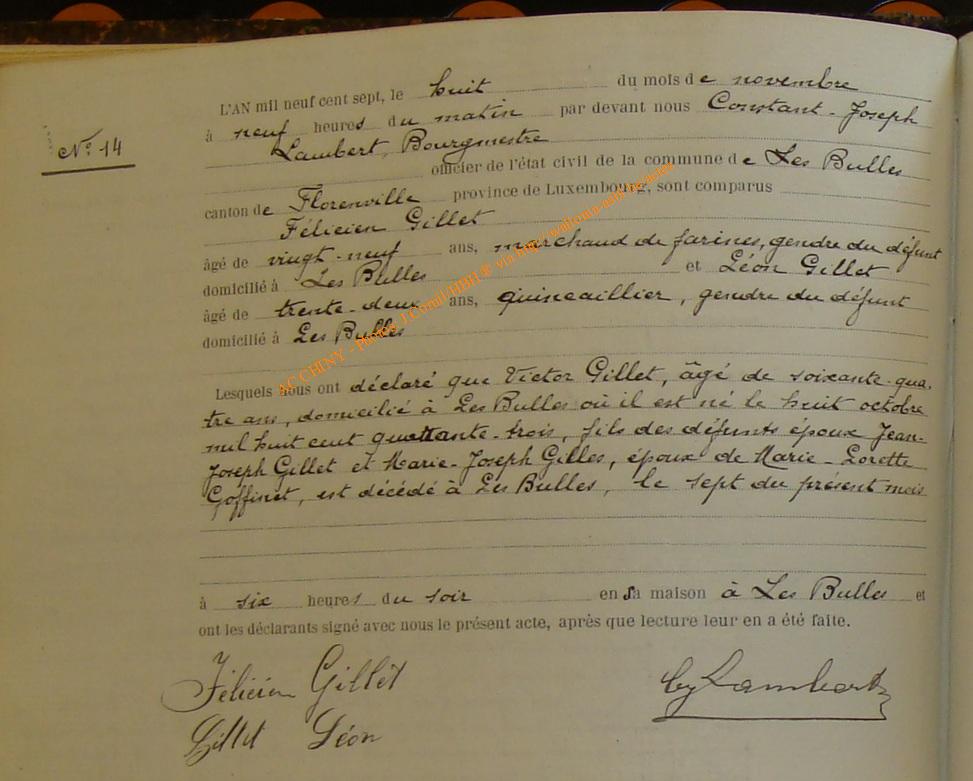 N° 14
L'AN mil neuf cent sept, le huit du mois de novembre
à neuf heures du matin par devant nous Constant-Joseph
Lambert, Bourgmestre
officier de l'état civil de la commune de Les Bulles
canton de Florenville province de Luxembourg, sont comparus
Félicien Gillet
âgé de vingt-neuf ans, marchand de farines, gendre du défunt
domicilié à Les Bulles et Léon Gillet
âgé de trente-deux ans, quincaillier, gendre du défunt
domicilié à Les Bulles
AC CHINY - Photos J.Comil/HBH® via http://wallonia-asbl
Lesquels nous ont déclaré que Victor Gillet, âgé de soixante-qua-
tre ans, domicilié à Les Bulles où il est né le huit octobre
mil huit cent quarante-trois, fils des défunts époux Jean-
Joseph Gillet et Marie-Joseph Gilles, époux de Marie-Lorette
Goffinet, est décédé à Les Bulles, le sept du présent mois
à six heures du soir en sa maison à Les Bulles et
ont les déclarants signé avec nous le présent acte, après que lecture leur en a été faite.
Félicien Gillet
Lambert
Gillet Léon